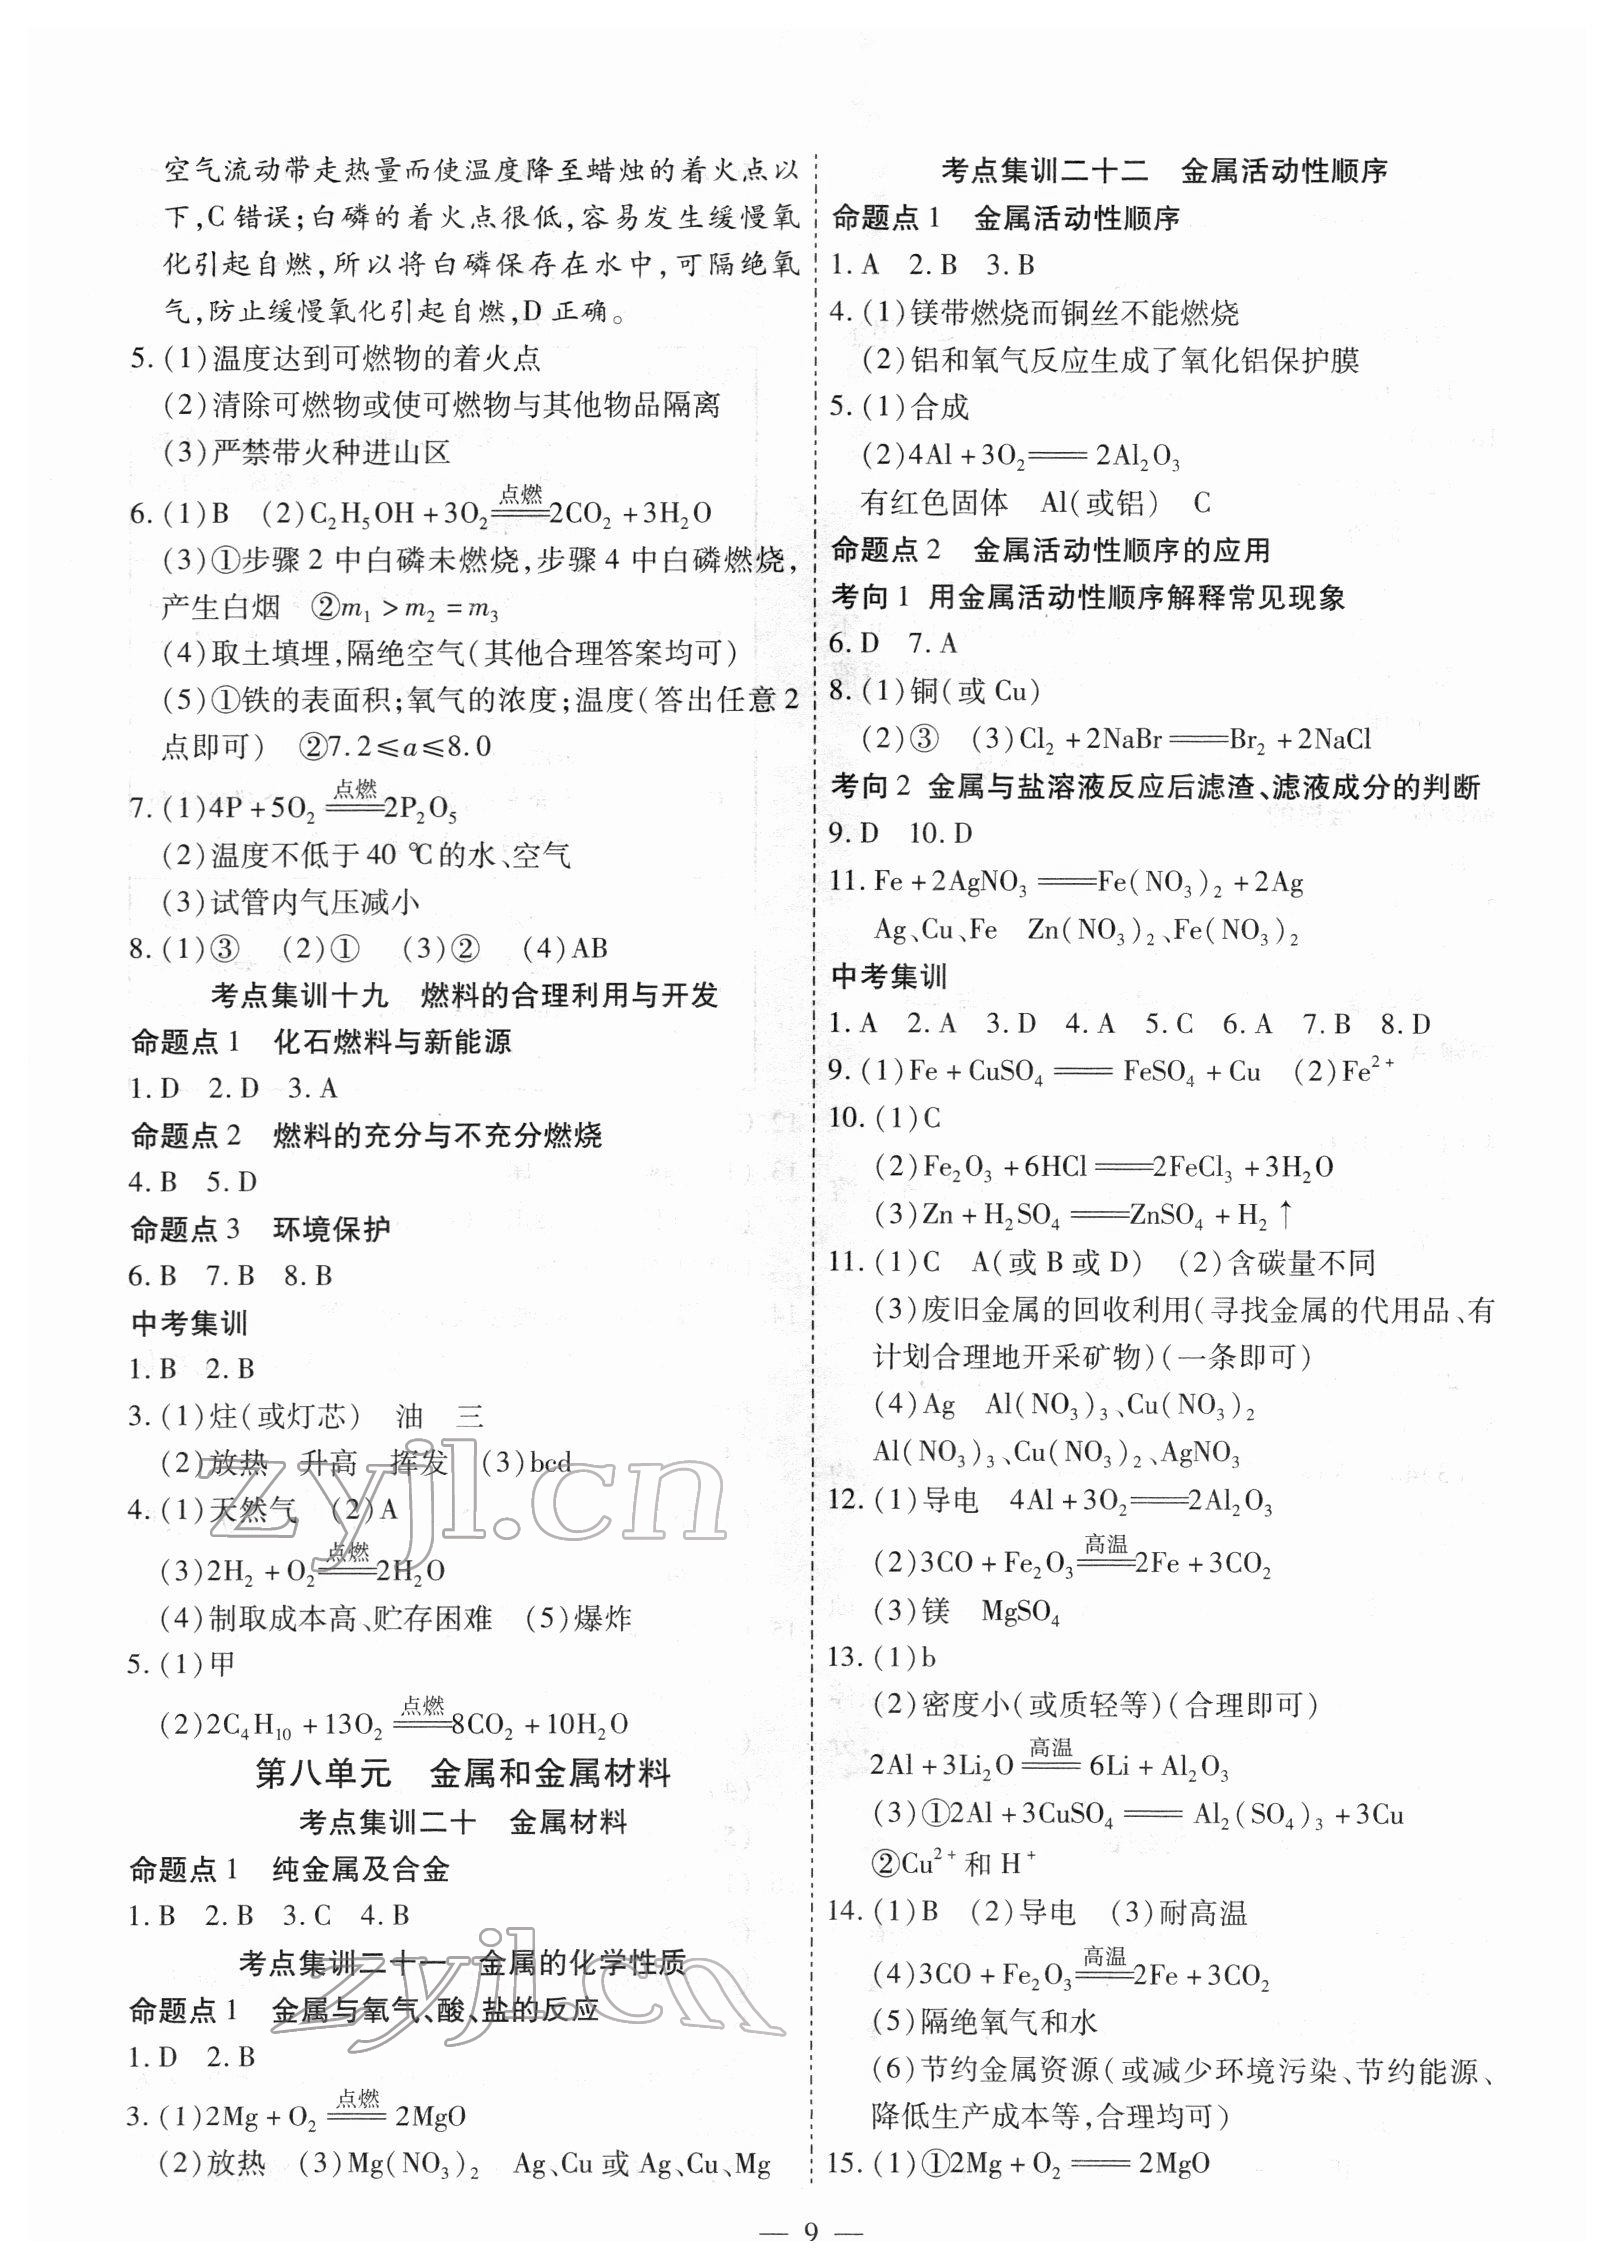 空气流动带走热量而使温度降至蜡烛的着火点以
下,C错误;白磷的着火点很低,容易发生缓慢氧
化引起自燃,所以将白磷保存在水中,可隔绝氧
气,防止缓慢氧化引起自燃,D正确。
5.(1)温度达到可燃物的着火点
(2)清除可燃物或使可燃物与其他物品隔离
(3)严禁带火种进山区
6.(1)B (2)C₂H₅OH+3O₂ =点燃= 2CO₂+3H₂O
(3)①步骤2中白磷未燃烧,步骤4中白磷燃烧,
产生白烟 ②m₁>m₂=m₃
(4)取土填埋,隔绝空气(其他合理答案均可)
(5)①铁的表面积;氧气的浓度;温度(答出任意2
点即可) ②7.2≤a≤8.0
7.(1)4P+5O₂ =点燃= 2P₂O₅
(2)温度不低于40 ℃的水、空气
(3)试管内气压减小
8.(1)③ (2)① (3)② (4)AB
考点集训十九 燃料的合理利用与开发
命题点1 化石燃料与新能源
1.D 2.D 3.A
命题点2 燃料的充分与不充分燃烧
4.B 5.D
命题点3 环境保护
6.B 7.B 8.B
中考集训
1.B 2.B
3.(1)炷(或灯芯) 油 三
(2)放热 升高 挥发 (3)bcd
4.(1)天然气 (2)A
(3)2H₂+O₂ =点燃= 2H₂O
(4)制取成本高、贮存困难 (5)爆炸
5.(1)甲
(2)2C₄H₁₀+13O₂ =点燃= 8CO₂+10H₂O
第八单元 金属和金属材料
考点集训二十 金属材料
命题点1 纯金属及合金
1.B 2.B 3.C 4.B
考点集训二十一 金属的化学性质
命题点1 金属与氧气、酸、盐的反应
1.D 2.B
3.(1)2Mg+O₂ =点燃= 2MgO
(2)放热 (3)Mg(NO₃)₂ Ag、Cu或Ag、Cu、Mg
考点集训二十二 金属活动性顺序
命题点1 金属活动性顺序
1.A 2.B 3.B
4.(1)镁带燃烧而铜丝不能燃烧
(2)铝和氧气反应生成了氧化铝保护膜
5.(1)合成
(2)4Al+3O₂══2Al₂O₃
有红色固体 Al(或铝) C
命题点2 金属活动性顺序的应用
考向1 用金属活动性顺序解释常见现象
6.D 7.A
8.(1)铜(或Cu)
(2)③ (3)Cl₂+2NaBr══Br₂+2NaCl
考向2 金属与盐溶液反应后滤渣、滤液成分的判断
9.D 10.D
11.Fe+2AgNO₃══Fe(NO₃)₂+2Ag
Ag、Cu、Fe Zn(NO₃)₂、Fe(NO₃)₂
中考集训
1.A 2.A 3.D 4.A 5.C 6.A 7.B 8.D
9.(1)Fe+CuSO₄══FeSO₄+Cu (2)Fe²⁺
10.(1)C
(2)Fe₂O₃+6HCl══2FeCl₃+3H₂O
(3)Zn+H₂SO₄══ZnSO₄+H₂↑
11.(1)C A(或B或D) (2)含碳量不同
(3)废旧金属的回收利用(寻找金属的代用品、有
计划合理地开采矿物)(一条即可)
(4)Ag Al(NO₃)₃、Cu(NO₃)₂
Al(NO₃)₃、Cu(NO₃)₂、AgNO₃
12.(1)导电 4Al+3O₂══2Al₂O₃
(2)3CO+Fe₂O₃ =高温= 2Fe+3CO₂
(3)镁 MgSO₄
13.(1)b
(2)密度小(或质轻等)(合理即可)
2Al+3Li₂O =高温= 6Li+Al₂O₃
(3)①2Al+3CuSO₄══Al₂(SO₄)₃+3Cu
②Cu²⁺和H⁺
14.(1)B (2)导电 (3)耐高温
(4)3CO+Fe₂O₃ =高温= 2Fe+3CO₂
(5)隔绝氧气和水
(6)节约金属资源(或减少环境污染、节约能源、
降低生产成本等,合理均可)
15.(1)①2Mg+O₂══2MgO
— 9 —
zyjl.cn
zyjl.cn